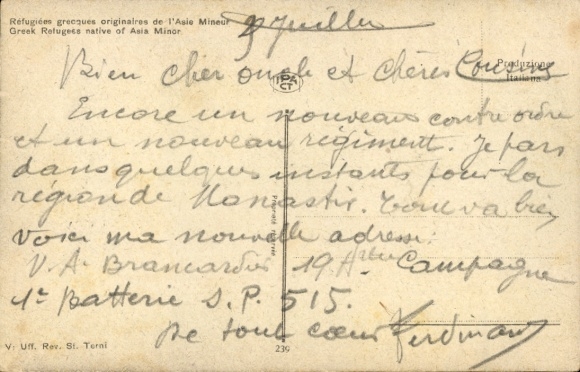 Réfugiées grecques originaires de l'Asie Mineur
Greek Refugees native of Asia Minor
9 Juillet
Produzione
Italiana
Bien cher oncle et chères Cousines
IPA
CT
Encore un nouveau contre ordre
et un nouveau régiment. Je pars
dans quelques instants pour la
région de Monastir. Tout va bien
Voici ma nouvelle adresse:
V. A. Brancardier 19 Artie Campagne
1e Batterie S.P. 515.
De tout cœur Ferdinand
Proprietà riservata
V: Uff. Rev. St. Terni
239